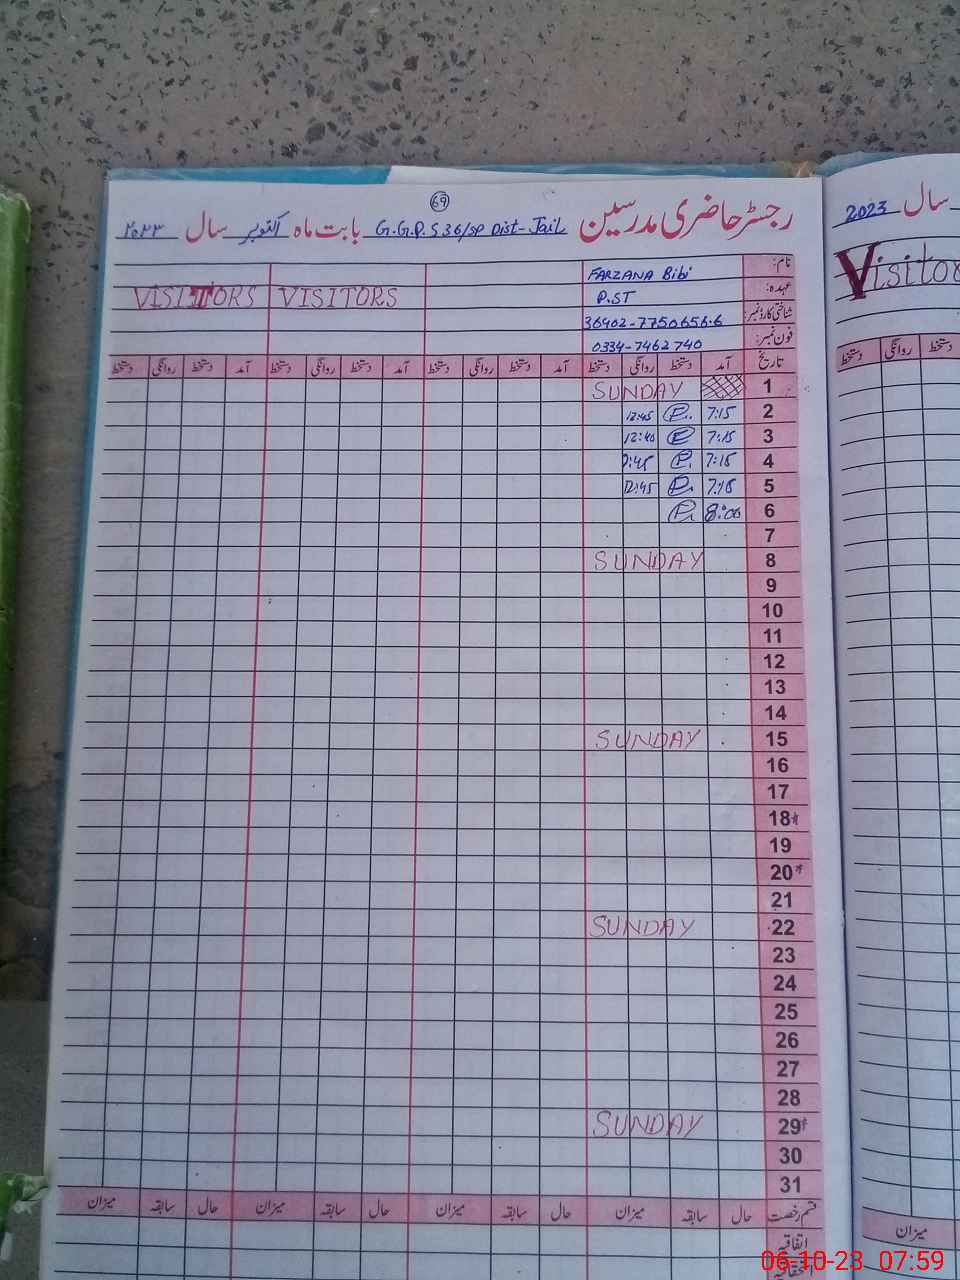 69
رجسٹر حاضری مدرسین G.G.P.S 36/SP Dist-Jail بابت ماہ اکتوبر سال ۲۰۲۳
نام: FARZANA Bibi
عہدہ: P.ST VISITORS VISITORS
شناختی کارڈ نمبر: 36402-7750656-6
فون نمبر: 0334-7462740
تاریخ آمد دستخط روانگی دستخط آمد دستخط روانگی دستخط آمد دستخط روانگی دستخط آمد دستخط روانگی دستخط
1 SUNDAY
2 7:15 12:45
3 7:15 12:40
4 7:15
5 7:15 12:45
6 8:00
7
8 SUNDAY
9
10
11
12
13
14
15 SUNDAY
16
17
18
19
20
21
22 SUNDAY
23
24
25
26
27
28
29 SUNDAY
30
31
قسم رخصت حال سابقہ میزان حال سابقہ میزان حال سابقہ میزان حال سابقہ میزان
اتفاقیہ
سال 2023
Visitor
دستخط روانگی دستخط
میزان
06-10-23 07:59